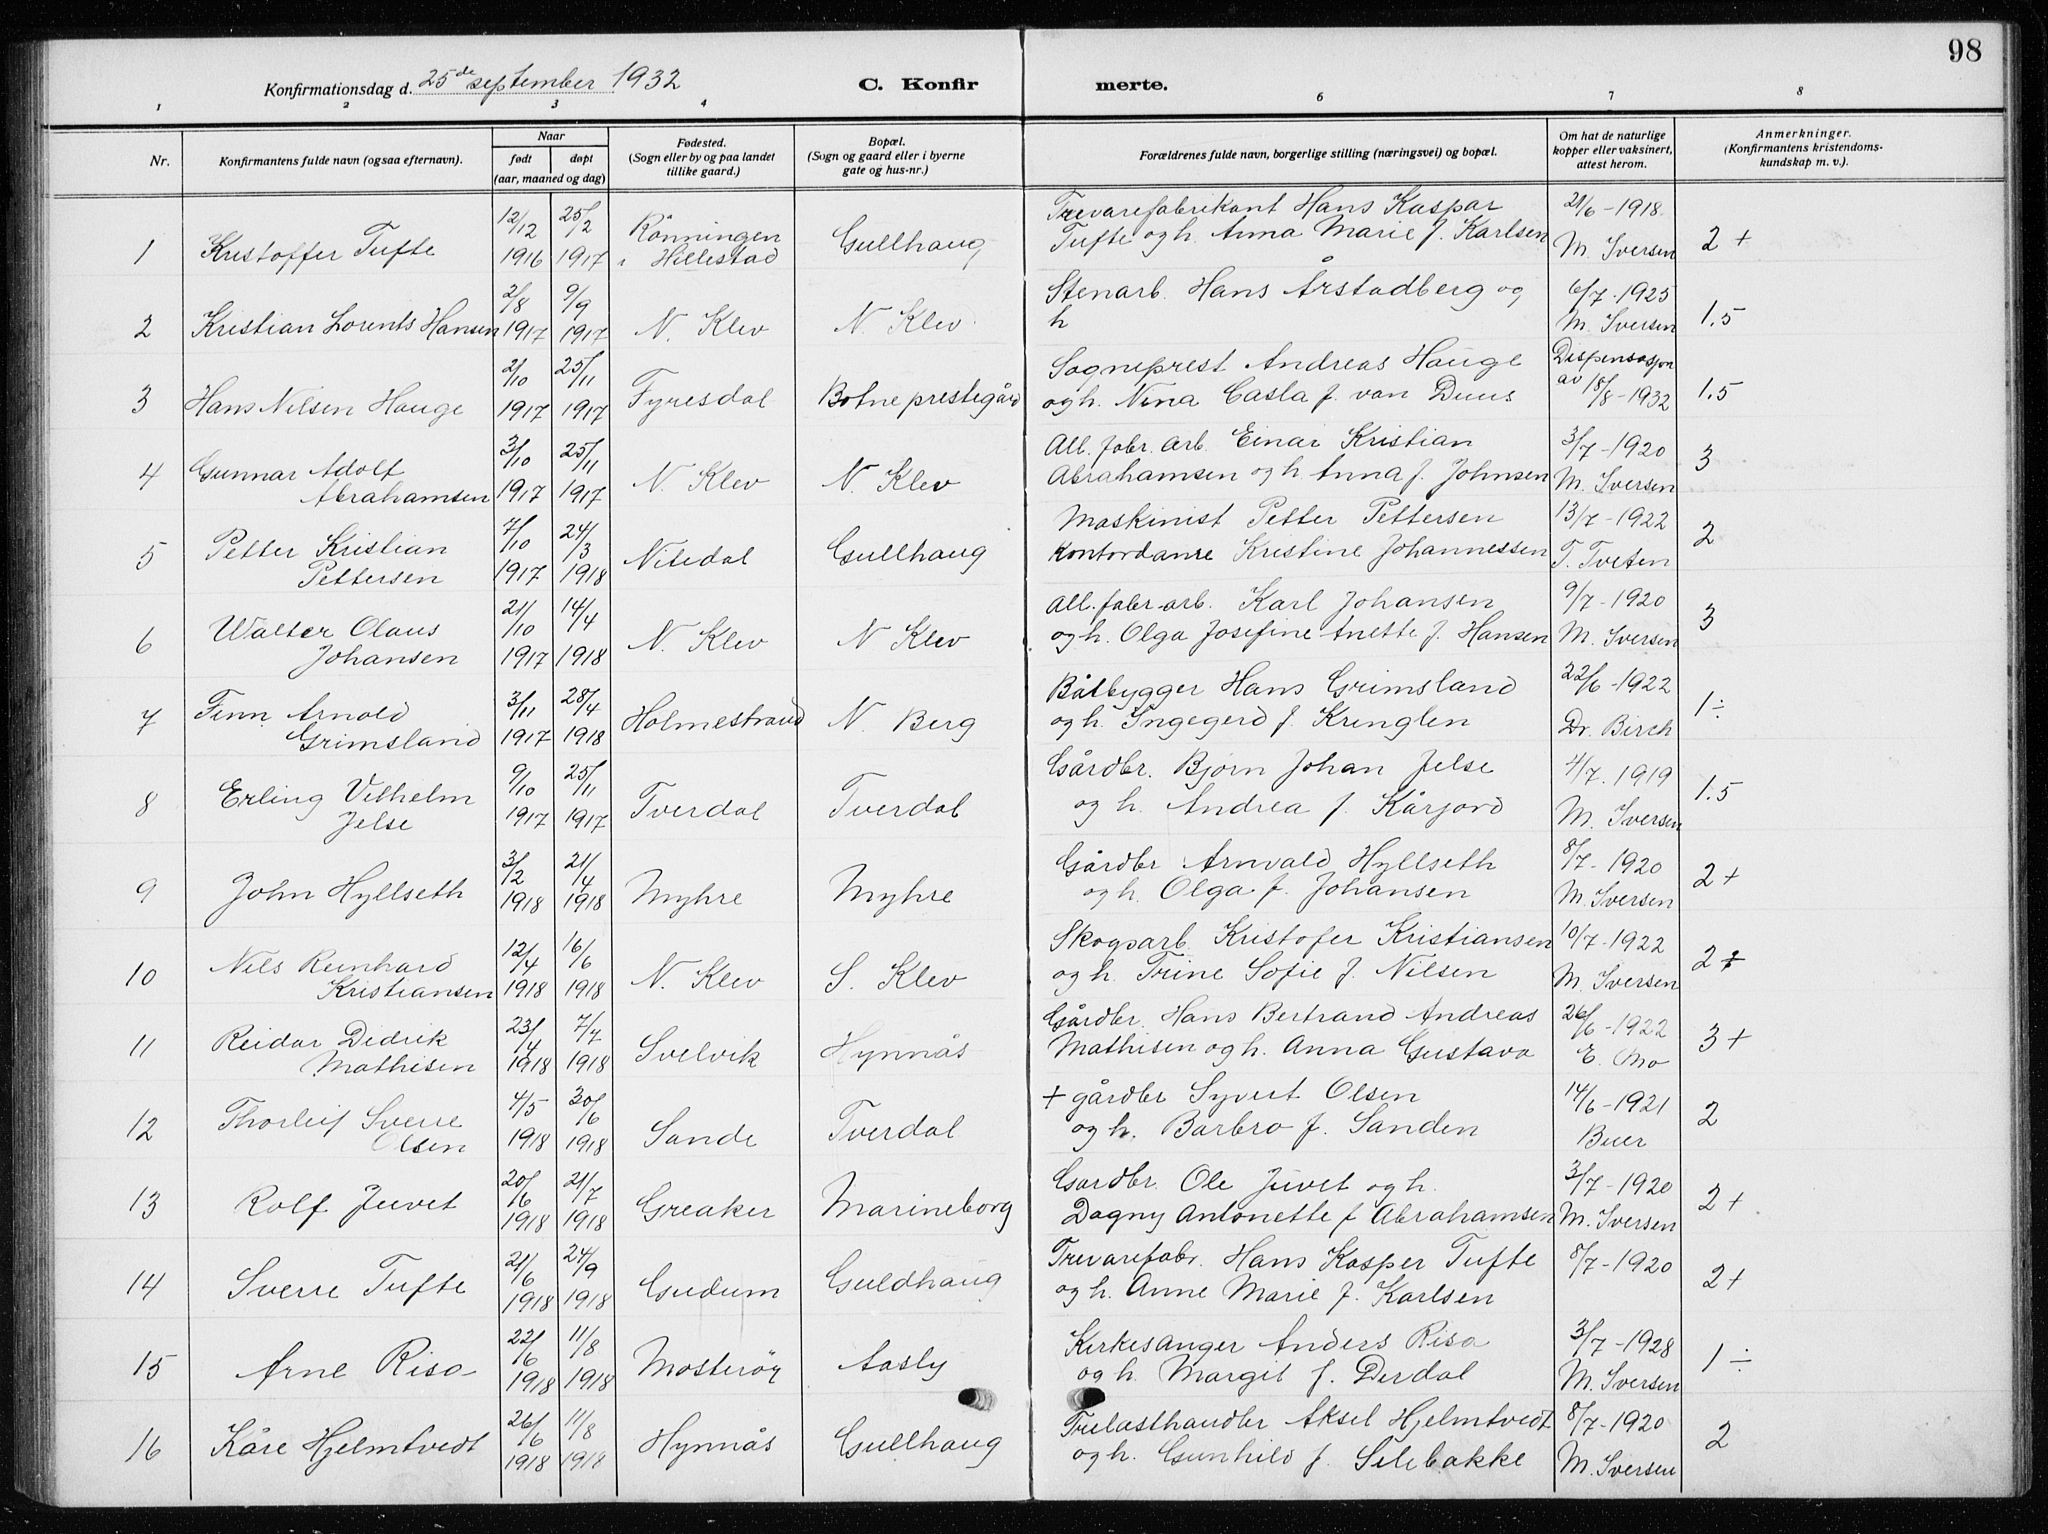 98
Konfirmationsdag d. 25de september 1932 C. Konfir merte.
1 2 3 4 6 7 8
Nr. Konfirmantens fulde navn (ogsaa efternavn). Naar født døpt (aar, maaned og dag) Fødested. (Sogn eller by og paa landet tillike gaard.) Bopæl. (Sogn og gaard eller i byerne gate og hus-nr.) Forældrenes fulde navn, borgerlige stilling (næringsvei) og bopæl. Om hat de naturlige kopper eller vaksinert, attest herom. Anmerkninger. (Konfirmantens kristendoms-kundskap m. v.).
1 Kristoffer Tufte 12/12 1916 25/2 1917 Rönningen i Hillestad Gullhaug Trevarefabrikant Hans Kaspar Tufte og h. Anna Marie f. Karlsen 21/6-1918 M. Iversen 2+
2 Kristian Lorents Hansen 2/8 1917 9/9 1917 N. Klev N. Klev. Stenarb. Hans Årstadberg og h 6/7-1925 M. Iversen 1.5
3 Hans Nilsen Hauge 2/10 1917 25/11 1917 Fyresdal Botne prestegård Sogneprest Andreas Hauge og h. Nina Casla f. van Duus Dispensasjon av 18/8-1932 1.5
4 Gunnar Adolf Abrahamsen 3/10 1917 25/11 1917 N. Klev N. Klev All. fabr. arb. Einar Kristian Abrahamsen og h. Anna f. Johnsen 3/7-1920 M. Iversen 3
5 Petter Kristian Pettersen 7/10 1917 24/3 1918 Nitedal Gullhaug Maskinist Petter Pettersen Kontordame Kristine Johannessen 13/7-1922 T. Tveten 2
6 Walter Olaus Johansen 21/10 1917 14/4 1918 N. Klev N Klev All. fabr. arb. Karl Johansen og h. Olga Josefine Anette f. Hansen 9/7-1920 M. Iversen 3
7 Finn Arnold Grimsland 3/11 1917 28/4 1918 Holmestrand N. Berg Båtbygger Hans Grimsland og h. Ingegerd f. Kringlen 22/6-1922 Dr. Birch 1÷
8 Erling Vilhelm Jelse 9/10 1917 25/11 1917 Tverdal Tverdal Gårdbr. Bjorn Johan Jelse og h. Andrea f. Kårjord 4/7.1919 M. Iversen 1.5
9 John Hyllseth 3/2 1918 21/4 1918 Myhre Myhre Gårdbr Arnvald Hyllseth og h. Olga f. Johansen 8/7-1920 M. Iversen 2+
10 Nils Reinhard Kristiansen 12/4 1918 16/6 1918 N. Klev S. Klev Skogsarb. Kristofer Kristiansen og h. Trine Sofie f. Nilsen 10/7-1922 M. Iversen 2+
11 Reidar Didrik Mathisen 23/4 1918 7/7 1918 Svelvik Hynnås Gårdbr. Hans Bertrand Andreas Mathisen og h. Anna Gustava 26/6-1922 E. Mo 3+
12 Thorleif Sverre Olsen 4/5 1918 30/6 1918 Sande Tverdal + gårdbr Syvert Olsen og h. Barbro f. Sanden 14/6-1921 Buer 2
13 Rolf Juvet 20/6 1918 21/7 1918 Greaker Marineborg Gardbr. Ole Juvet og h. Dagny Antonette f Abrahamsen 3/7-1920 M. Iversen 2+
14 Sverre Tufte 21/6 1918 24/9 1918 Gudum Guldhaug Trevarefabr. Hans Kasper Tufte og h. Anne Marie f. Karlsen 8/7-1920 2+
15 Arne Risa 22/6 1918 11/8 1918 Mosterøy Aasly Kirkesanger Anders Risa og h. Margit f. Dirdal 3/7-1928 M. Iversen 1÷
16 Kåre Hjelmtvedt 26/6 1918 11/8 1918 Hynnås Gullhaug Trelasthandler Aksel Hjelmtvedt og h. Gunhild f. Silebakke 8/7-1920 M. Iversen 2